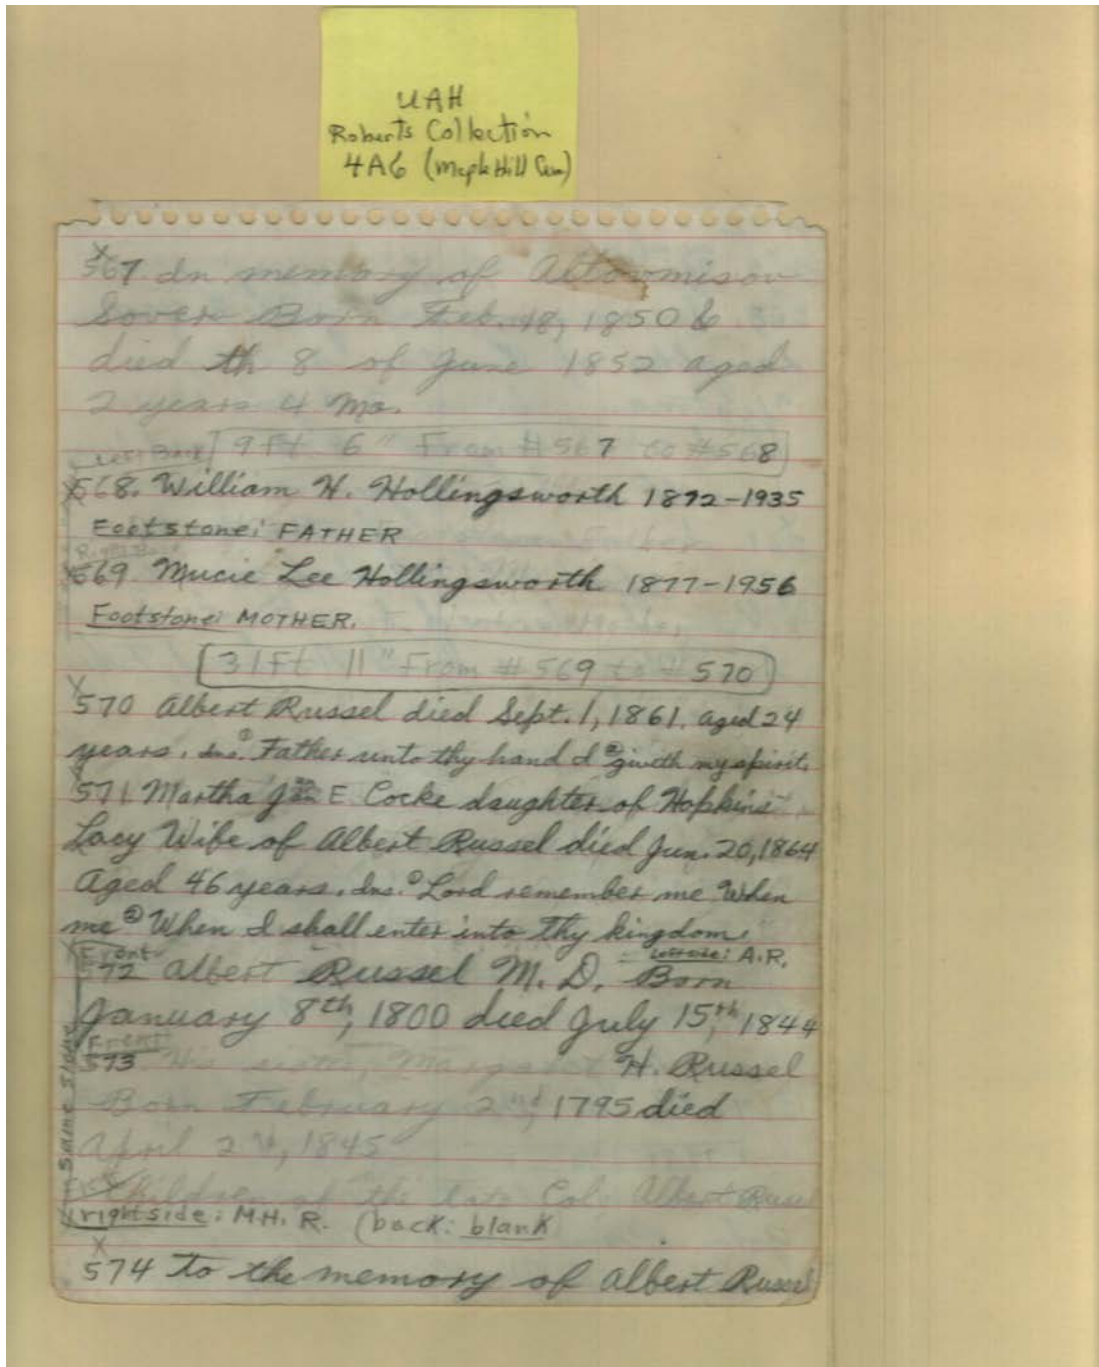 UAH
Roberts Collection
4A6 (Maple Hill Cem)
567. In memory of
Born Feb. 18, 1850 &
died th 8 of June 1852 aged
2 years 4 Mo.
Left Back
9 Ft. 6" From #567 to #568
568. William H. Hollingsworth 1872-1935
Footstone: FATHER
569. Mucie Lee Hollingsworth 1877-1956
Footstone: MOTHER.
31 Ft 11" From #569 to #570
570 Albert Russel died Sept. 1, 1861. aged 24
years. Ins. ① Father unto thy hand I ② giveth my spirit.
571 Martha E. Cocke daughter of Hopkins
Lacy Wife of Albert Russel died Jun. 20, 1864
Aged 46 years. Ins. ① Lord remember me When
me ② When I shall enter into Thy kingdom.
Front
: A.R.
572 Albert Russel M.D. Born
January 8th, 1800 died July 15th, 1844
Front
573 His sister, Margaret H. Russel
Born February 2nd, 1795 died
April 1845
Same Stone
Children of the late Col. Albert Russ
rightside: M.H.R. (back: blank
574 To the memory of Albert Russel